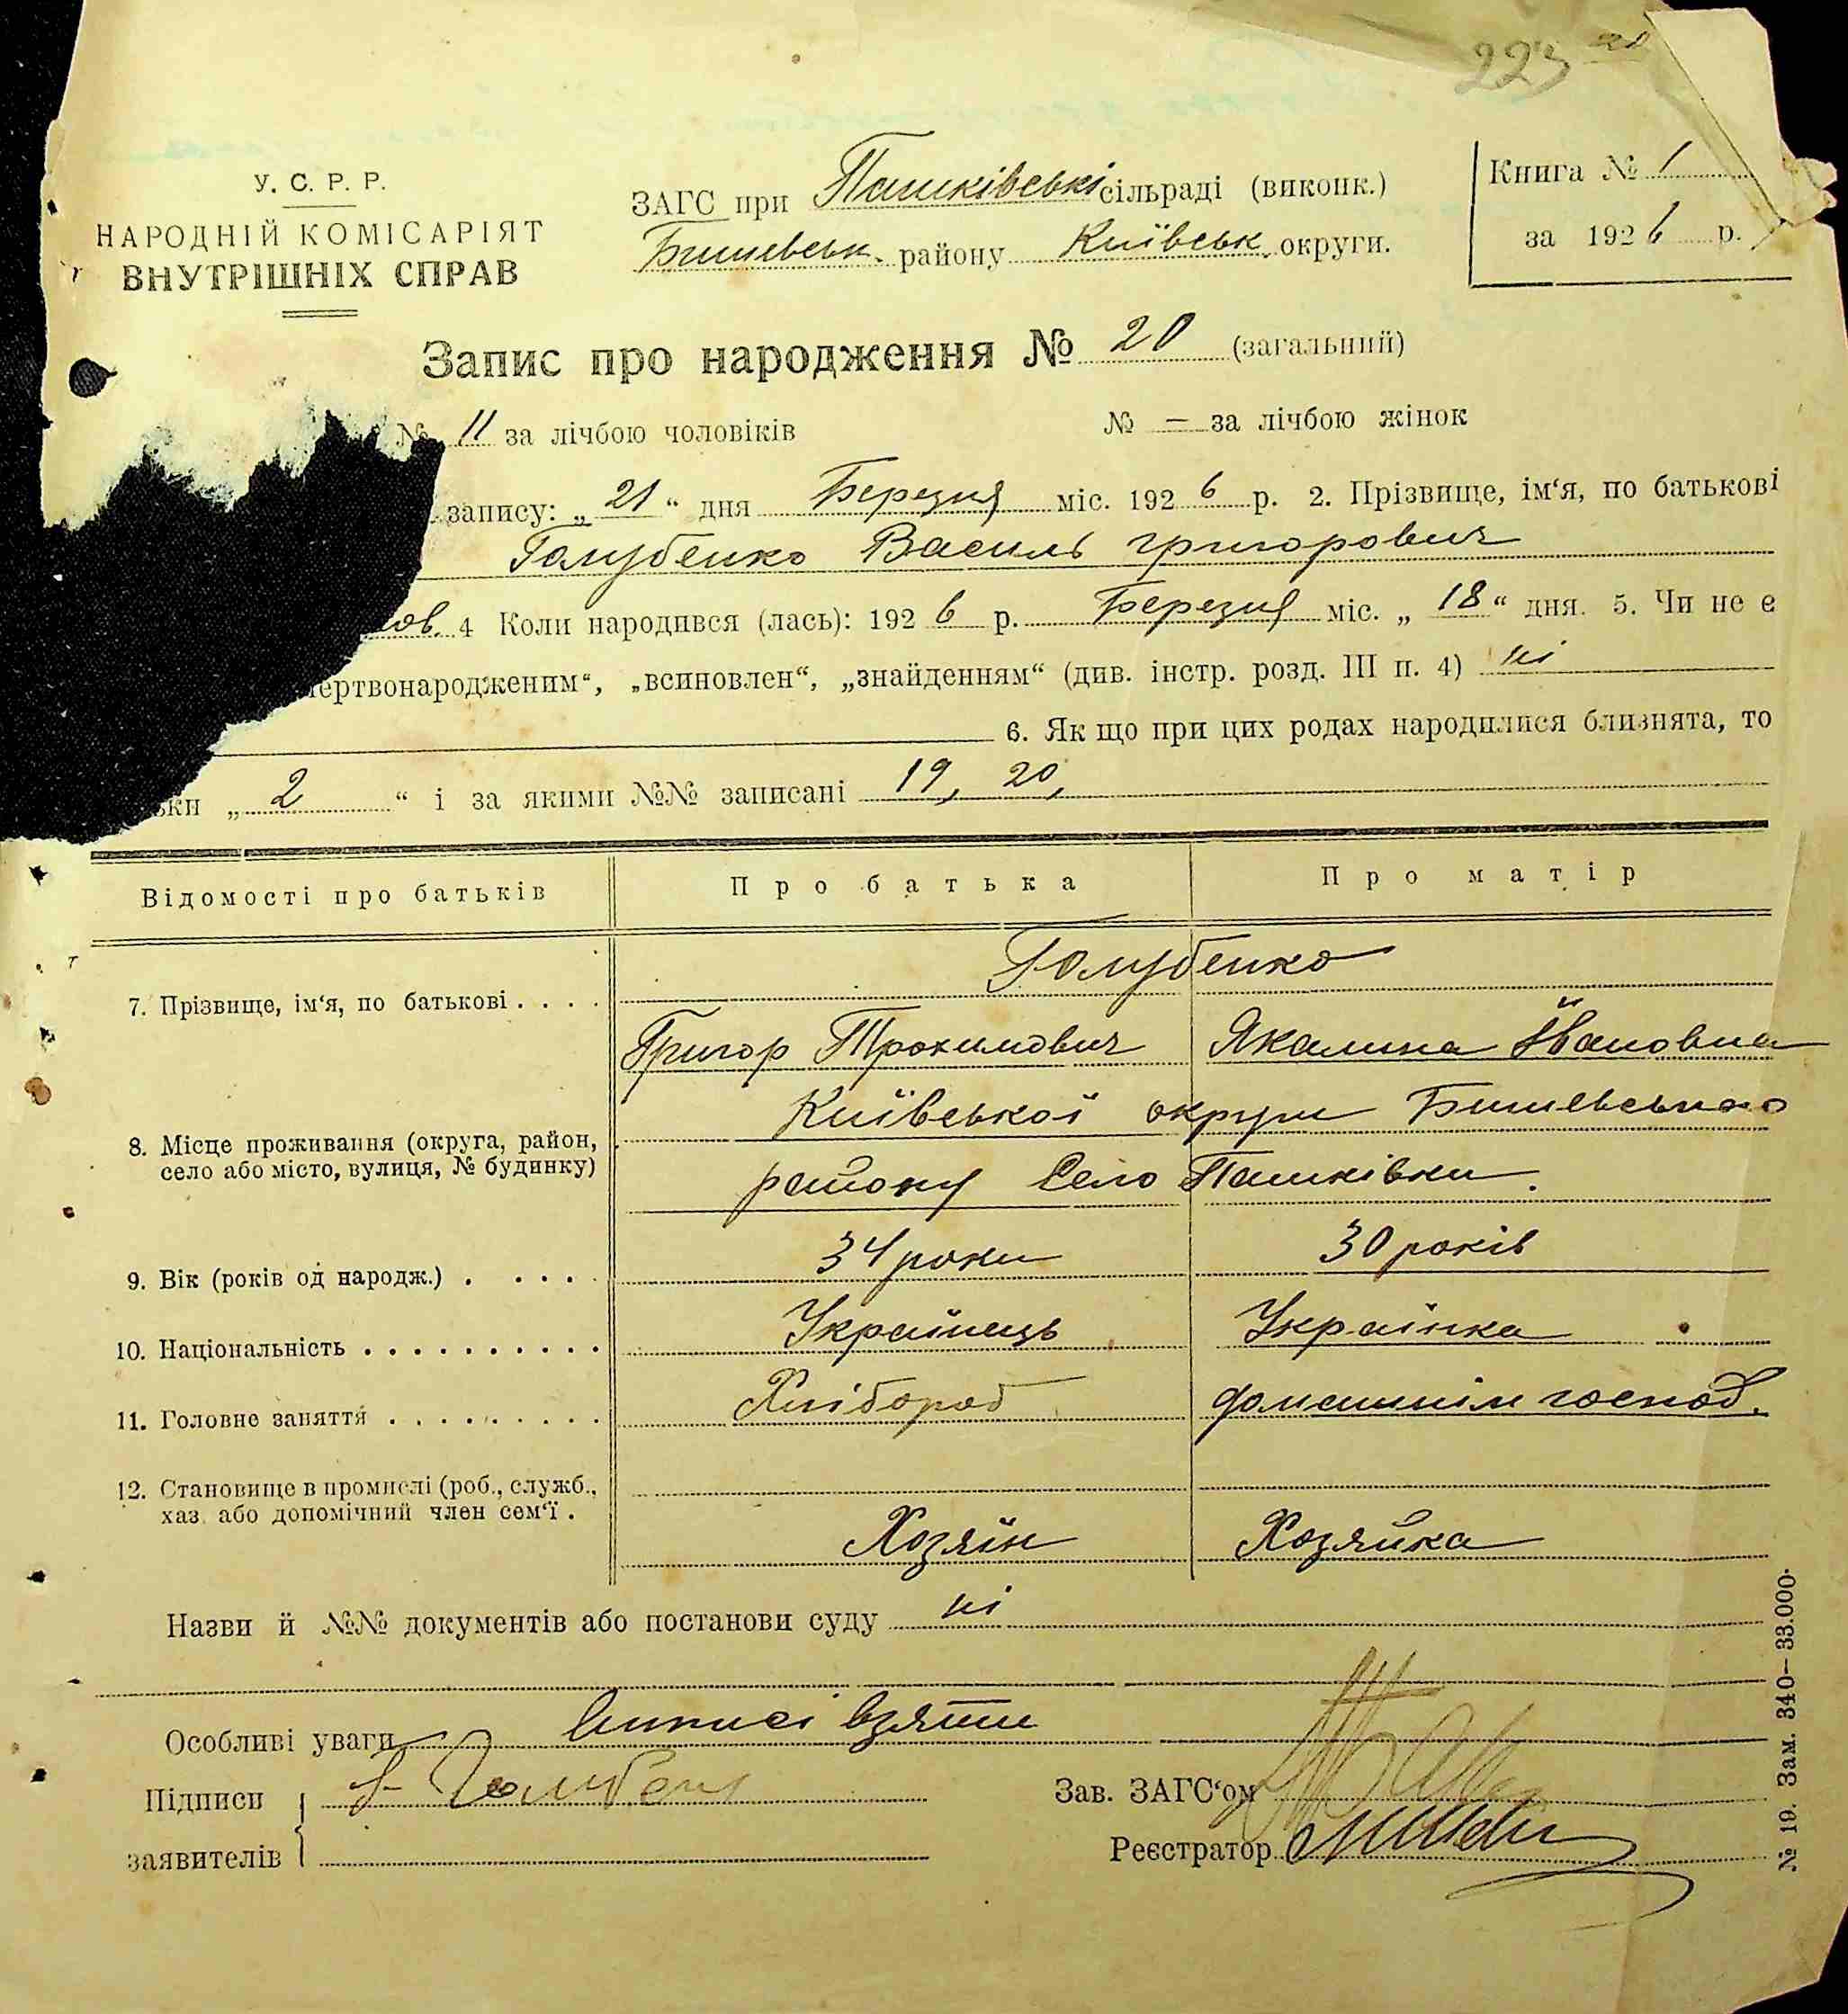 223
У. С. Р. Р.
НАРОДНІЙ КОМІСАРІЯТ
ВНУТРІШНІХ СПРАВ
ЗАГС при Пашківські сільраді (виконк.)
Бишевськ. району Київськ. округи.
Книга № 1
за 1926 р.
Запис про народження № 20 (загальний)
№ 11 за лічбою чоловіків № — за лічбою жінок
запису: „21“ дня Березня міс. 1926 р. 2. Прізвище, ім‘я, по батькові
Голубенко Василь Григорович
ов. 4 Коли народився (лась): 1926 р. Березня міс. „18“ дня. 5. Чи не є
мертвонародженим“, „всиновлен“, „знайденням“ (див. інстр. розд. III п. 4) ні
6. Як що при цих родах народилися близнята, то
ьки „2“ і за якими №№ записані 19, 20,
Відомості про батьків Про батька Про матір
Голубенко
7. Прізвище, ім‘я, по батькові . . . .
Григор Трохимович Якалина Івановна
Київської округи Бишевського
8. Місце проживання (округа, район,
село або місто, вулиця, № будинку)
району Село Пашківки.
9. Вік (років од народж.) . . . . . 34 роки 30 років
10. Національність . . . . . . . . . . Українець Українка
11. Головне заняття . . . . . . . . . Хлібороб домашнім господ.
12. Становище в промислі (роб., служб.,
хаз. або допомічний член сем‘ї .
Хозяїн Хозяйка
Назви й №№ документів або постанови суду ні
Особливі уваги Виписі взяти
Підписи
заявителів
Зав. ЗАГС‘ом
Реєстратор
№ 19. Зам. 340—33.000.